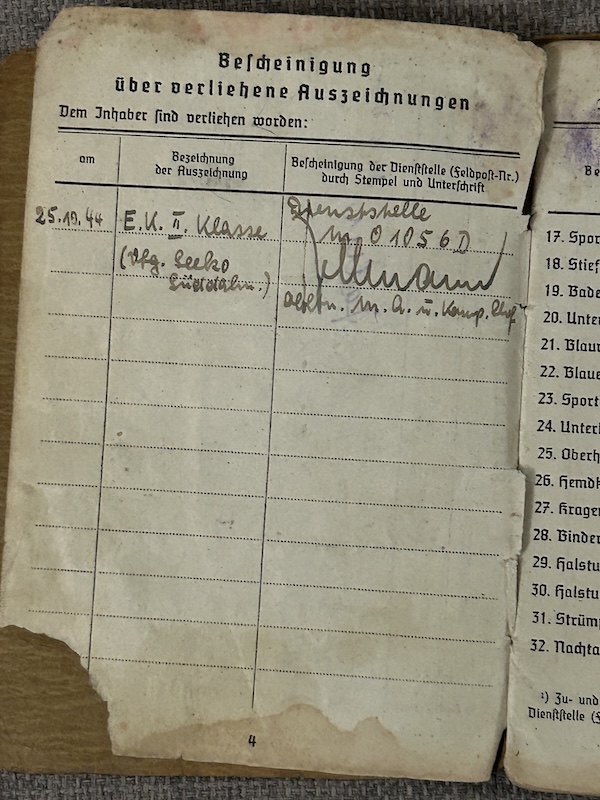 Bescheinigung
über verliehene Auszeichnungen
Dem Inhaber sind verliehen worden:
am
Bezeichnung
der Auszeichnung
Bescheinigung der Dienststelle (Feldpost-Nr.)
durch Stempel und Unterschrift
25.10.44
E.K. II. Klasse
(Vfg. Seeko
Süddalm.)
Dienststelle
M 01056 D
m. A. u. Komp. Chef
4
17. Spor
18. Stief
19. Bade
20. Unter
21. Blau
22. Blaue
23. Sport
24. Unter
25. Oberh
26. Hemd
27. Krage
28. Binder
29. Halstu
30. Halstu
31. Strüm
32. Nachta
¹) Zu- und
Dienststelle (F